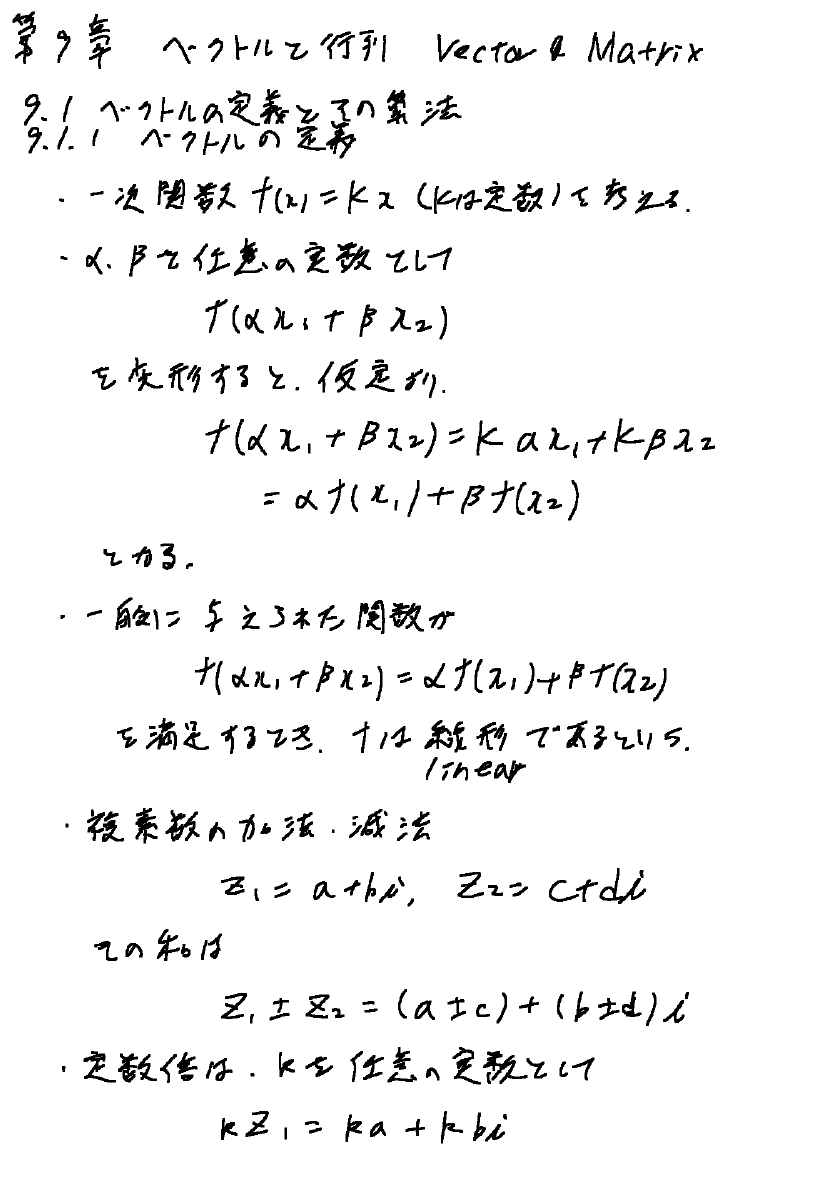 第9章 ベクトルと行列 Vector & Matrix
9.1 ベクトルの定義とその算法
9.1.1 ベクトルの定義
・一次関数 f(x)=Kx (Kは定数)を考える.
・α, βを任意の定数として
f(αx₁+βx₂)
を変形すると, 仮定より,
f(αx₁+βx₂)=Kαx₁+Kβx₂
=αf(x₁)+βf(x₂)
となる.
・一般に与えられた関数が
f(αx₁+βx₂)=αf(x₁)+βf(x₂)
を満足するとき, fは線形であるという.
linear
・複素数の加法・減法
Z₁=a+bi, Z₂=c+di
その和は
Z₁±Z₂=(a±c)+(b±d)i
・定数倍は, kを任意の定数として
kZ₁=ka+kbi